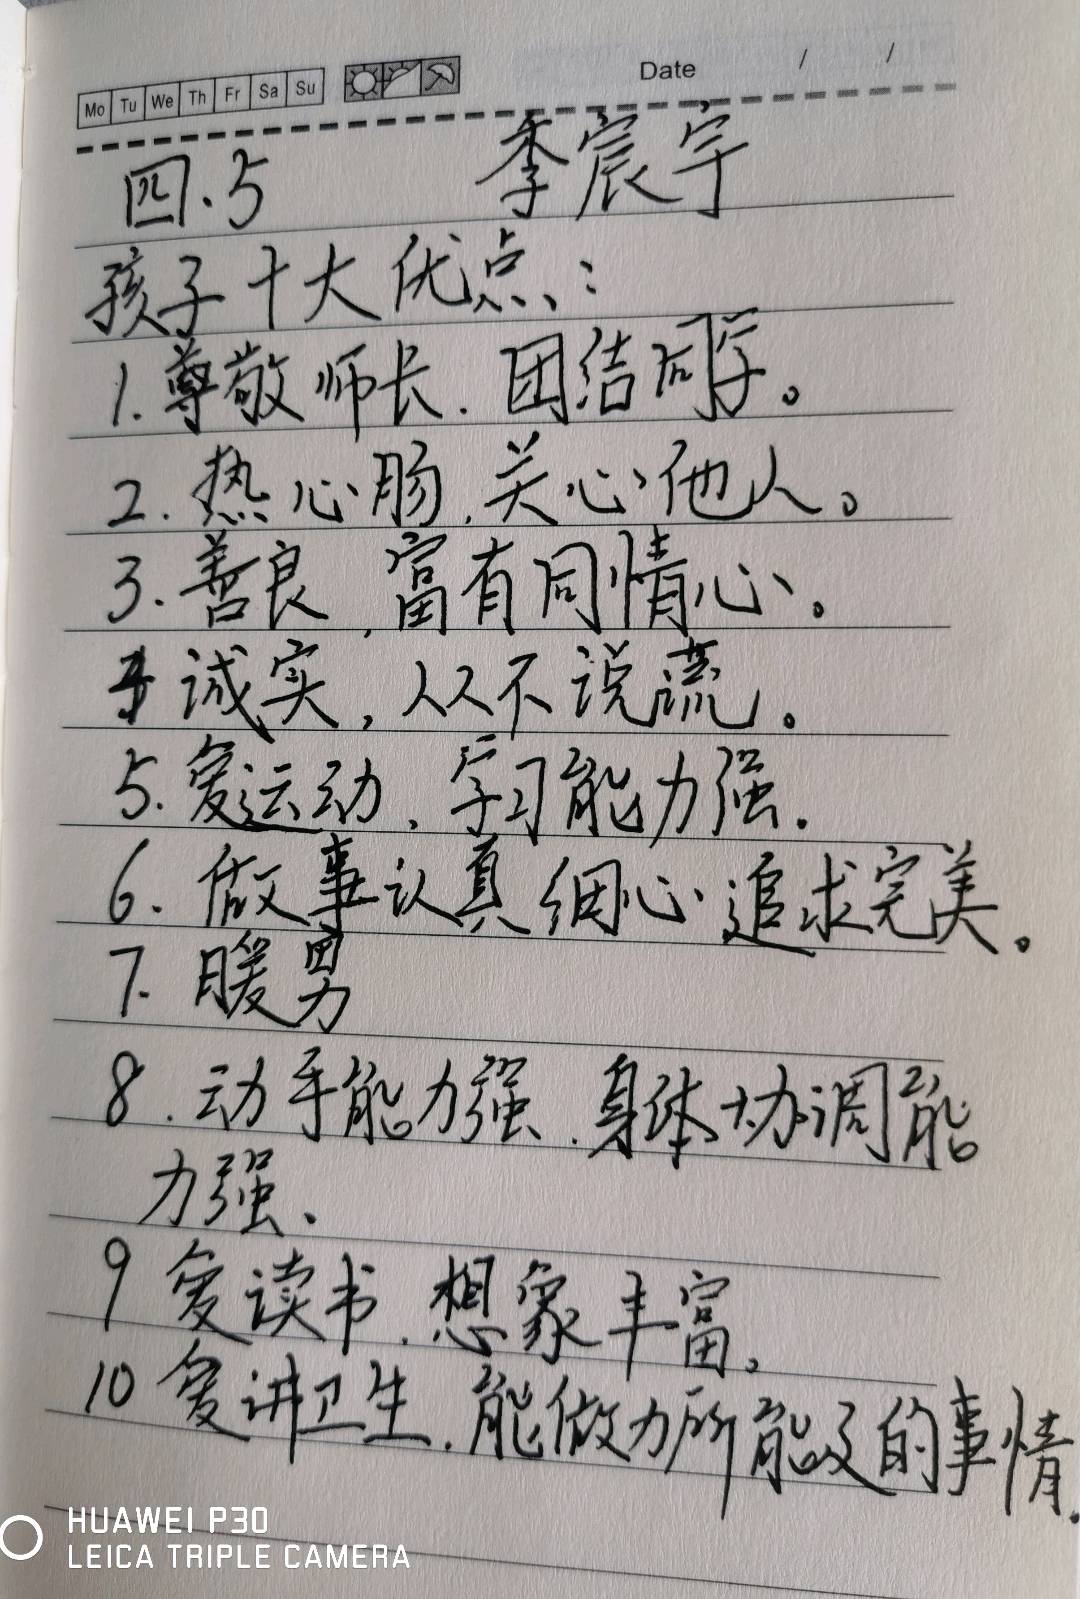 Mo Tu We Th Fr Sa Su
Date / /
四.5 季宸宇
孩子十大优点:
1.尊敬师长.团结同学。
2.热心肠,关心他人。
3.善良,富有同情心。
4诚实,从不说谎。
5.爱运动,学习能力强.
6.做事认真细心追求完美。
7.暖男
8.动手能力强.身体协调能
力强、
9爱读书.想象丰富。
10爱讲卫生.能做力所能及的事情.
HUAWEI P30
LEICA TRIPLE CAMERA